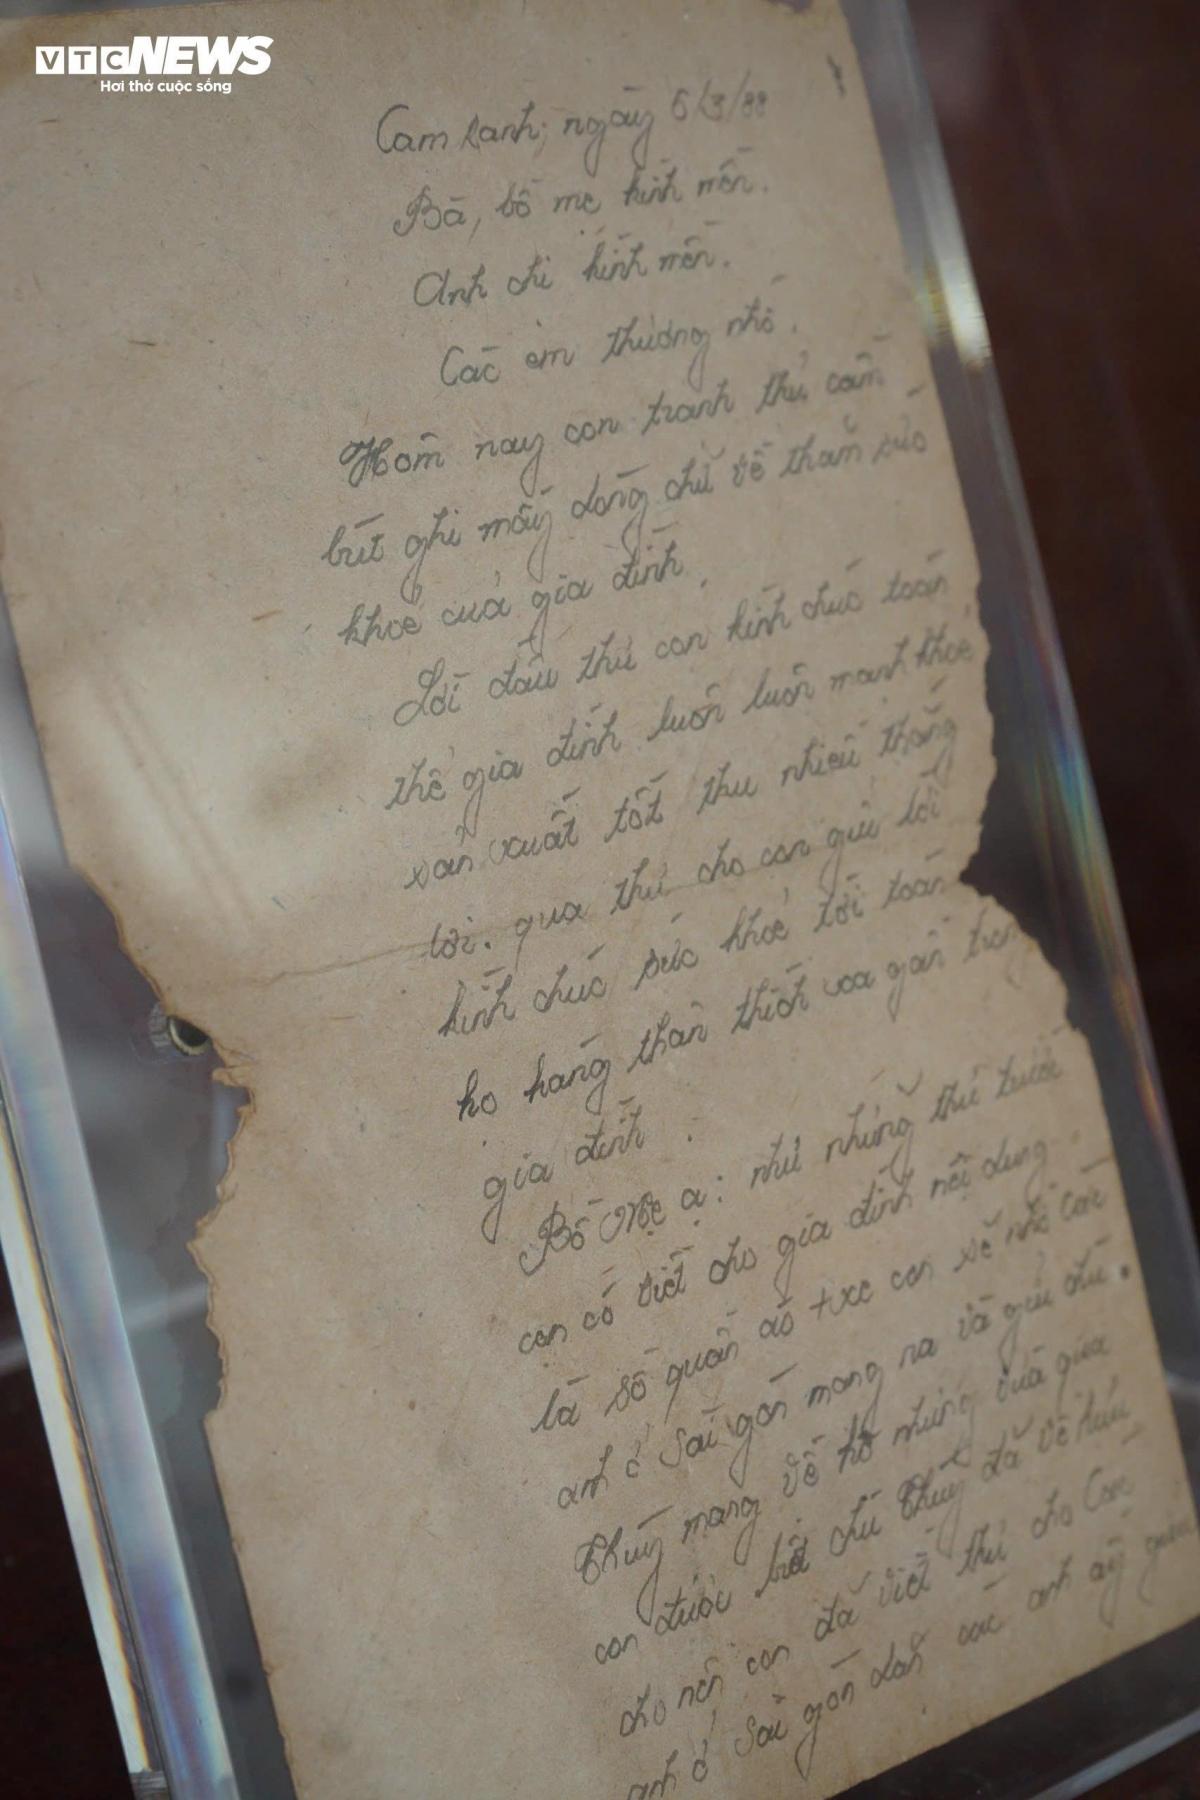 VTC NEWS
Hơi thở cuộc sống
Cam Ranh, ngày 6/3/88
Bà, bố mẹ kính mến.
Anh chị kính mến.
Các em thương nhớ.
Hôm nay con tranh thủ cầm
bút ghi mấy dòng chữ về thăm sức
khoẻ của gia đình.
Lời đầu thư con kính chúc toàn
thể gia đình luôn luôn mạnh khoẻ
sản xuất tốt thu nhiều thắng
lợi. qua thư cho con gửi lời
kính chúc sức khoẻ tới toàn
họ hàng thân thích xa gần trong
gia đình.
Bố Mẹ ạ: như những thư trước
con có viết cho gia đình nội dung
là số quần áo + xe con sẽ nhờ các
anh ở Sài gòn mang ra và gửi chú
Thuý mang về hộ nhưng vừa qua
con được biết chú Thuý đã về hưu
cho nên con đã viết thư cho Các
anh ở Sài gòn dặn các anh ấy